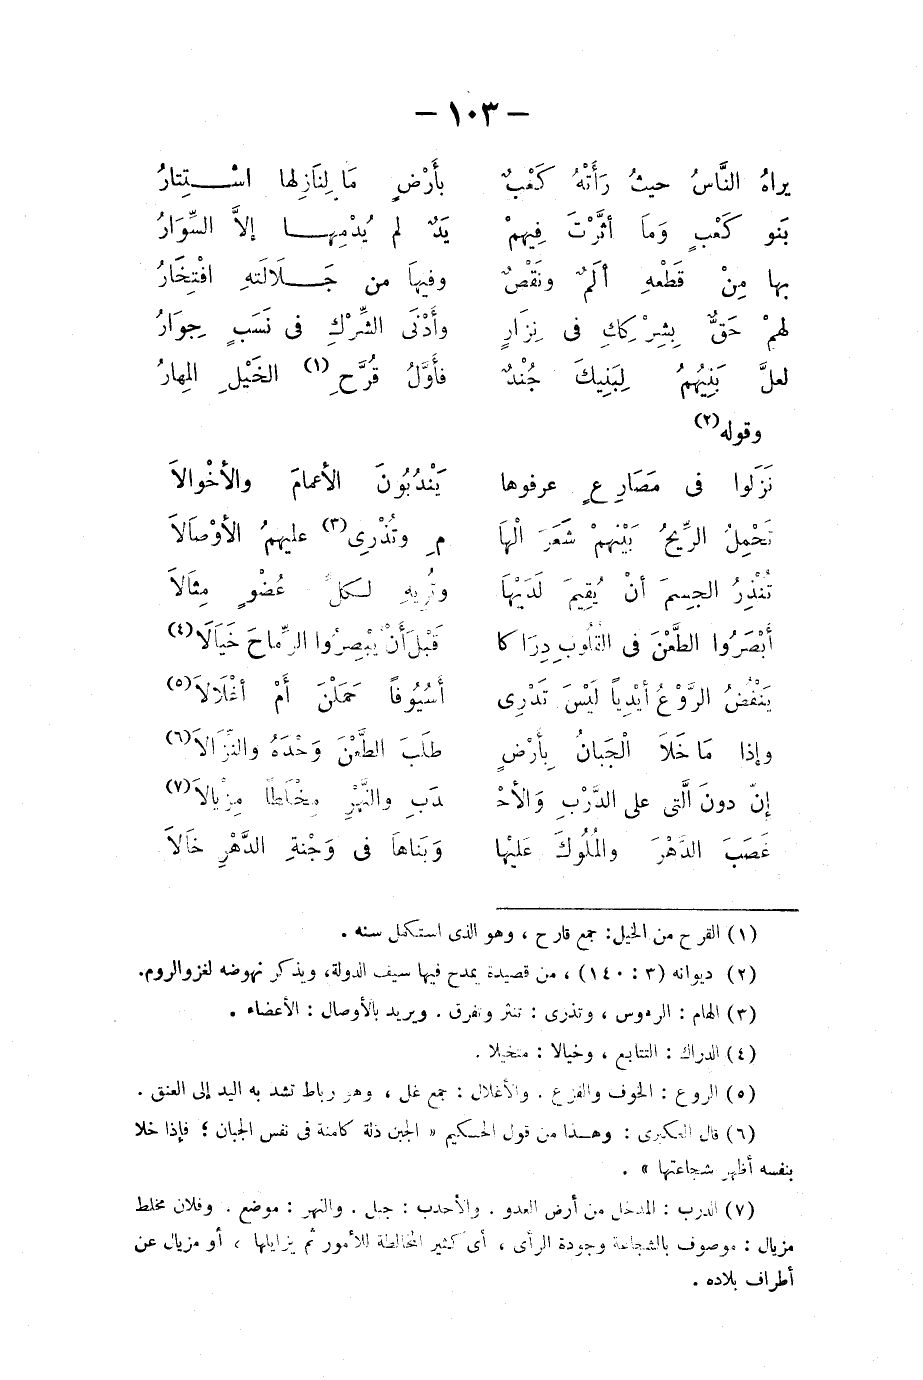 — ١٠٣ —
يراهُ النَّاسُ حيثُ رَأَتْهُ كَعْبٌ بأَرْضٍ مَا لِنَازِلها اسْتِتارُ
بَنو كَعْبٍ وَمَا أثَّرْتَ فِيهمْ يَدٌ لم يُدْمِها إلاَّ السِّوَارُ
بها مِنْ قَطْعهِ أَلَمٌ ونَقْصٌ وفيهَا من جَلَالَتهِ افْتِخَارُ
لهمْ حَقٌّ بِشِرْكِكِ فى نِزَارٍ وأَدْنَى الشِّرْكِ فى نَسَبٍ جِوَارُ
لعلَّ بَنِيهُمُ لِبَنِيكَ جُنْدٌ فأَوَّلُ قُرَّحِ (١) الخَيْلِ المِهارُ
وقوله (٢)
نَزَلوا فى مَصَارِعٍ عرفوها يَنْدُبُونَ الأعمامَ والأخْوالاَ
تَحْمِلُ الرِّيحُ بَيْنهمْ شَعَرَ الْها مِ وتُذْرِى (٣) عليهمُ الأوْصَالاَ
تُنْذِرُ الجسِمَ أنْ يُقِيمَ لَدَيْهَا وتُرِيهِ لكلِّ عُضْوٍ مِثَالاَ
أَبْصَرُوا الطَّعْنَ فى القُلُوبِ دِرَاكا قَبْلَ أَنْ يُبْصِرُوا الرِّماحَ خَيَالَا (٤)
يَنْفُضُ الرَّوْعُ أَيْدِياً لَيْسَ تَدْرِى أَسُيُوفاً حَمَلْنَ أَمْ أغْلَالاَ (٥)
وإذا مَا خَلاَ الْجَبانُ بِأَرْضٍ طَلَبَ الطَّعْنَ وَحْدَهُ والنِّزَالاَ (٦)
إنّ دونَ الَّتى على الدَّرْبِ وَالأحْ دَبِ والنَّهْرِ مِخْلَطاً مِزْيالاَ (٧)
غَصَبَ الدَّهْرَ والمُلُوكَ عَلَيْها وَبَناهاَ فى وَجْنةِ الدَّهْرِ خَالاَ
(١) القرح من الخيل: جمع قارح ، وهو الذى استكمل سنه .
(٢) ديوانه (٣ : ١٤٠) ، من قصيدة يمدح فيها سيف الدولة، ويذكر نهوضه لغزو الروم.
(٣) الهام : الرءوس ، وتذرى : تنثر وتفرق . ويريد بالأوصال : الأعضاء .
(٤) الدراك : التتابع ، وخيالا : متخيلا .
(٥) الروع : الخوف والفزع . والأغلال : جمع غل ، وهو رباط تشد به اليد إلى العنق .
(٦) قال العكبرى : وهذا من قول الحكيم « الجبن ذلة كامنة فى نفس الجبان ؛ فإذا خلا
بنفسه أظهر شجاعتها » .
(٧) الدرب : المدخل من أرض العدو . والأحدب : جبل . والنهر : موضع . وفلان مخلط
مزيال : موصوف بالشجاعة وجودة الرأى ، أى كثير المخالطة للأمور ثم يزايلها ، أو مزيال عن
أطراف بلاده .